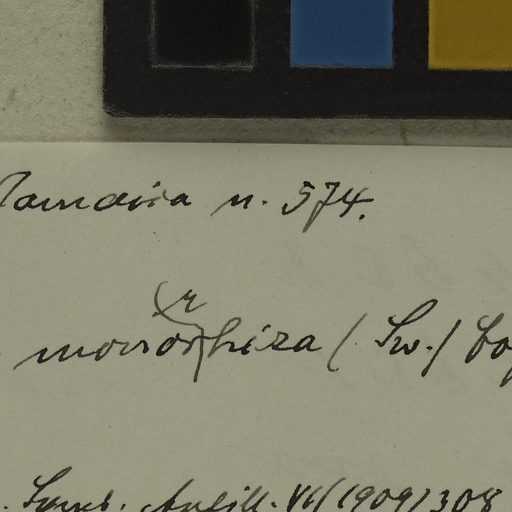 Jamaica n. 574.
r
monorhiza (Sw.) Cog
. Symb. Antill. VI (1909) 308